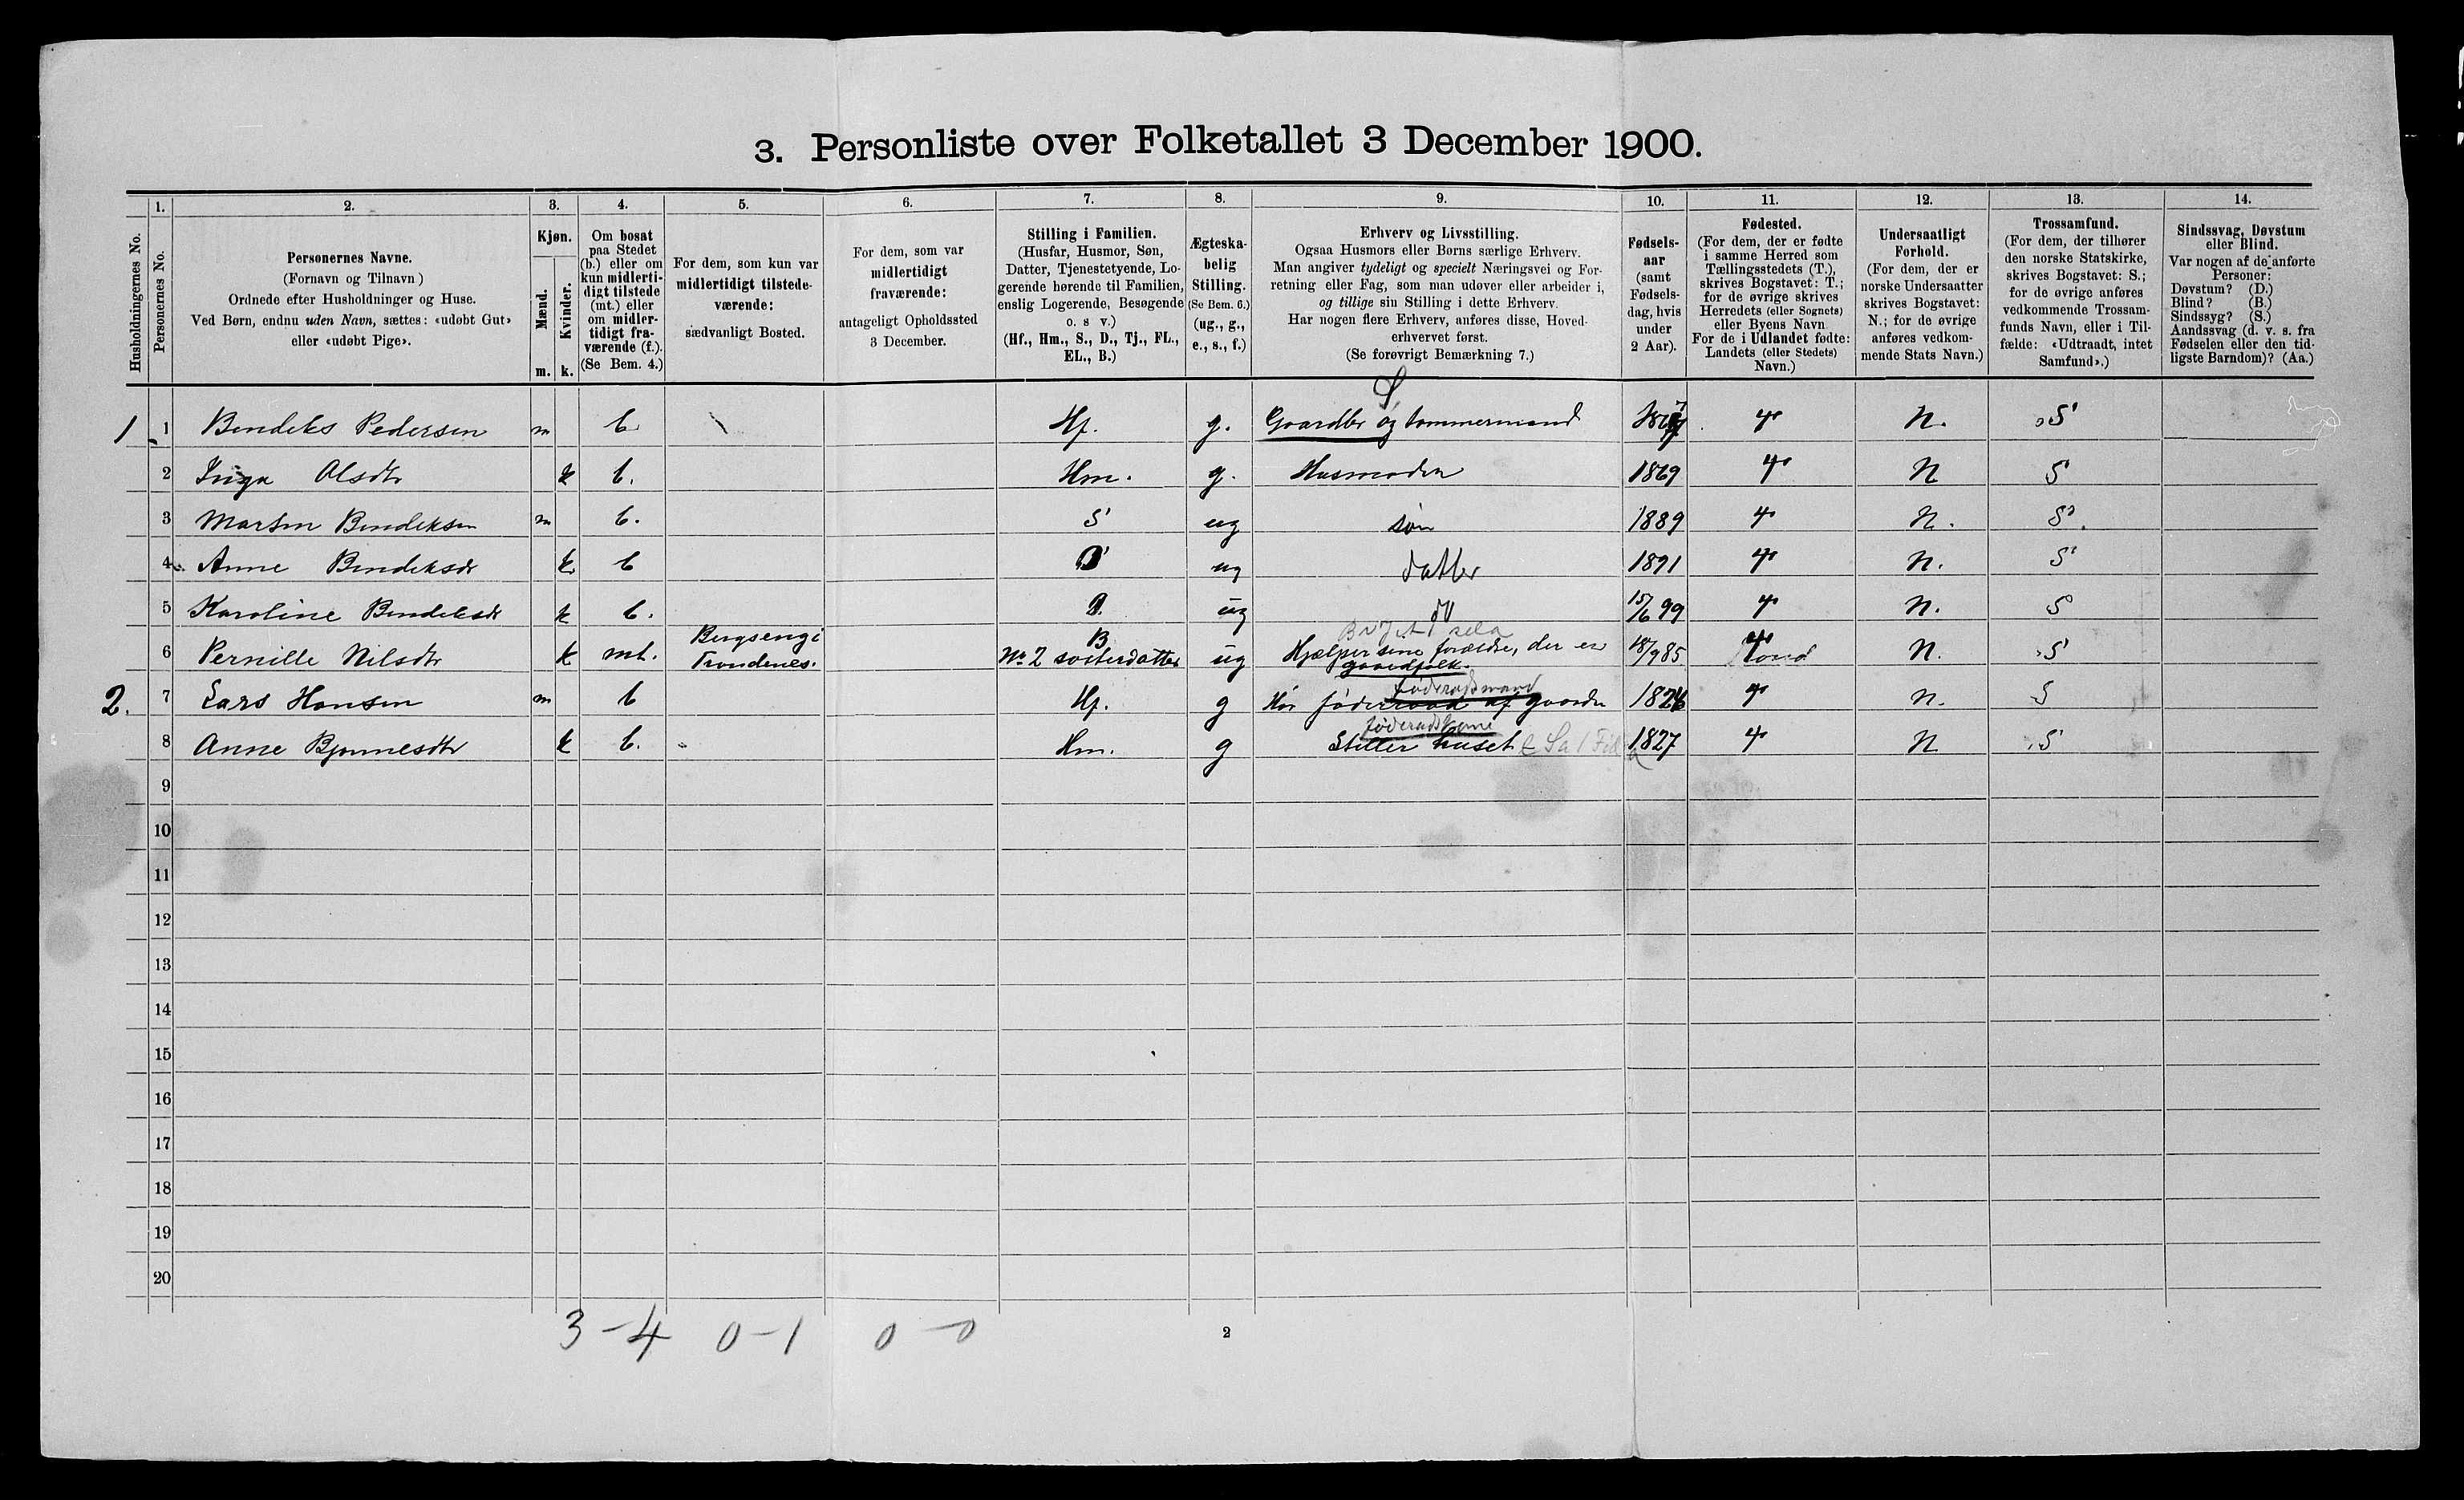 3. Personliste over Folketallet 3 December 1900.
Husholdningernes No.
1.
Personernes No.
2.
Personernes Navne.
(Fornavn og Tilnavn)
Ordnede efter Husholdninger og Huse.
Ved Børn, endnu uden Navn, sættes: «udøbt Gut»
eller «udøbt Pige».
3.
Kjøn.
Mænd.
Kvinder.
m. k.
4.
Om bosat
paa Stedet
(b.) eller om
kun midlerti-
digt tilstede
(mt.) eller
om midler-
tidigt fra-
værende (f.).
(Se Bem. 4.)
5.
For dem, som kun var
midlertidigt tilstede-
værende:
sædvanligt Bosted.
6.
For dem, som var
midlertidigt
fraværende:
antageligt Opholdssted
3 December.
7.
Stilling i Familien.
(Husfar, Husmor, Søn,
Datter, Tjenestetyende, Lo-
gerende hørende til Familien,
enslig Logerende, Besøgende
o. s v.)
(Hf., Hm., S., D., Tj., FL.,
EL., B.)
8.
Ægteska-
belig
Stilling.
(Se Bem. 6.)
(ug., g.,
e., s., f.)
9.
Erhverv og Livsstilling.
Ogsaa Husmors eller Børns særlige Erhverv.
Man angiver tydeligt og specielt Næringsvei og For-
retning eller Fag, som man udøver eller arbeider i,
og tillige sin Stilling i dette Erhverv.
Har nogen flere Erhverv, anføres disse, Hoved-
erhvervet først.
(Se forøvrigt Bemærkning 7.)
10.
Fødsels-
aar
(samt
Fødsels-
dag, hvis
under
2 Aar).
11.
Fødested.
(For dem, der er fødte
i samme Herred som
Tællingsstedets (T.),
skrives Bogstavet: T.;
for de øvrige skrives
Herredets (eller Sognets)
eller Byens Navn
For de i Udlandet fødte:
Landets (eller Stedets)
Navn.)
12.
Undersaatligt
Forhold.
(For dem, der er
norske Undersaatter
skrives Bogstavet:
N.; for de øvrige
anføres vedkom-
mende Stats Navn.)
13.
Trossamfund.
(For dem, der tilhører
den norske Statskirke,
skrives Bogstavet: S.;
for de øvrige anføres
vedkommende Trossam-
funds Navn, eller i Til-
fælde: «Udtraadt, intet
Samfund».)
14.
Sindssvag, Døvstum
eller Blind.
Var nogen af de anførte
Personer:
Døvstum? (D.)
Blind? (B.)
Sindssyg? (S.)
Aandssvag (d. v. s. fra
Fødselen eller den tid-
ligste Barndom)? (Aa.)
S
1 1 Bendeks Pedersen m b Hf. g. Gaardbr og tømmermand T N. S
2 Inga Olsdtr k b. Hm. g. Husmoder 1869 T N S
3 Martin Bendeksen m b. S ug søn 1889 T N. S.
4 Anne Bendeksdr k b D ug datter 1891 T N. S
5 Karoline Bendeksdr k b. D. ug do 15/6 99 T N. S
6 Pernille Nilsdtr k mt. Bergsengi Trondenes. B No 2 søsterdatter ug Hjælper sine forældre, der er
gaardfolk. 18/9 85 N. S
føderadsmand
2. 7 Lars Hansen m b Hf. g Har føderaad af gaarden 1826 T N. S
føderadskone
8 Anne Bjønnesdtr k b. Hm. g Steller huset 1827 T N S
9
10
11
12
13
14
15
16
17
18
19
20
3 - 4 0 - 1 0 - 0
2